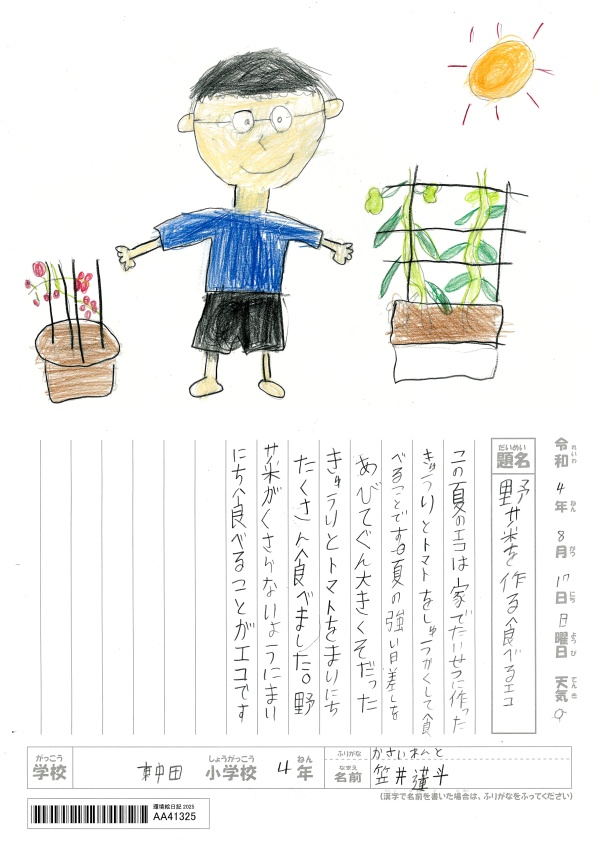 令和4年8月17日日曜日 天気
れいわ ねん がつ にち ようび てんき
だいめい
題名 野菜を作る食べるエコ
この夏のエコは家でたいせつに作った
きゅうりとトマトをしゅうかくして食
べることです。夏の強い日差しを
あびてぐん大きくそだった
きゅうりとトマトをまいにち
たくさん食べました。野
菜がくさらないようにまい
にち食べることがエコです
がっこう しょうがっこう ねん
学校 東中田 小学校 4年
ふりがな かさいれんと
なまえ
名前 笠井蓮斗
(漢字で名前を書いた場合は、ふりがなをふってください)
環境絵日記 2025
AA41325